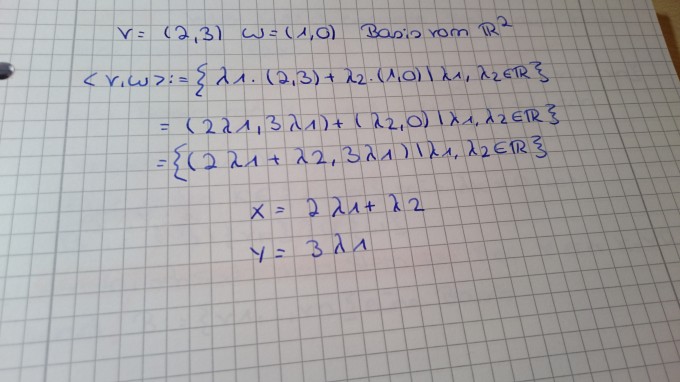 v = (2,3) w = (1,0) Basis vom ℝ²
<v,w> := { λ1 · (2,3) + λ2 · (1,0) | λ1, λ2 ∈ ℝ }
= (2λ1, 3λ1) + (λ2, 0) | λ1, λ2 ∈ ℝ }
= { (2λ1 + λ2, 3λ1) | λ1, λ2 ∈ ℝ }
x = 2λ1 + λ2
y = 3λ1